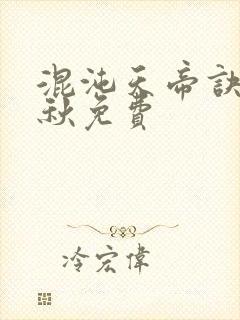 混沌天帝訣
秋免費
冷宏偉